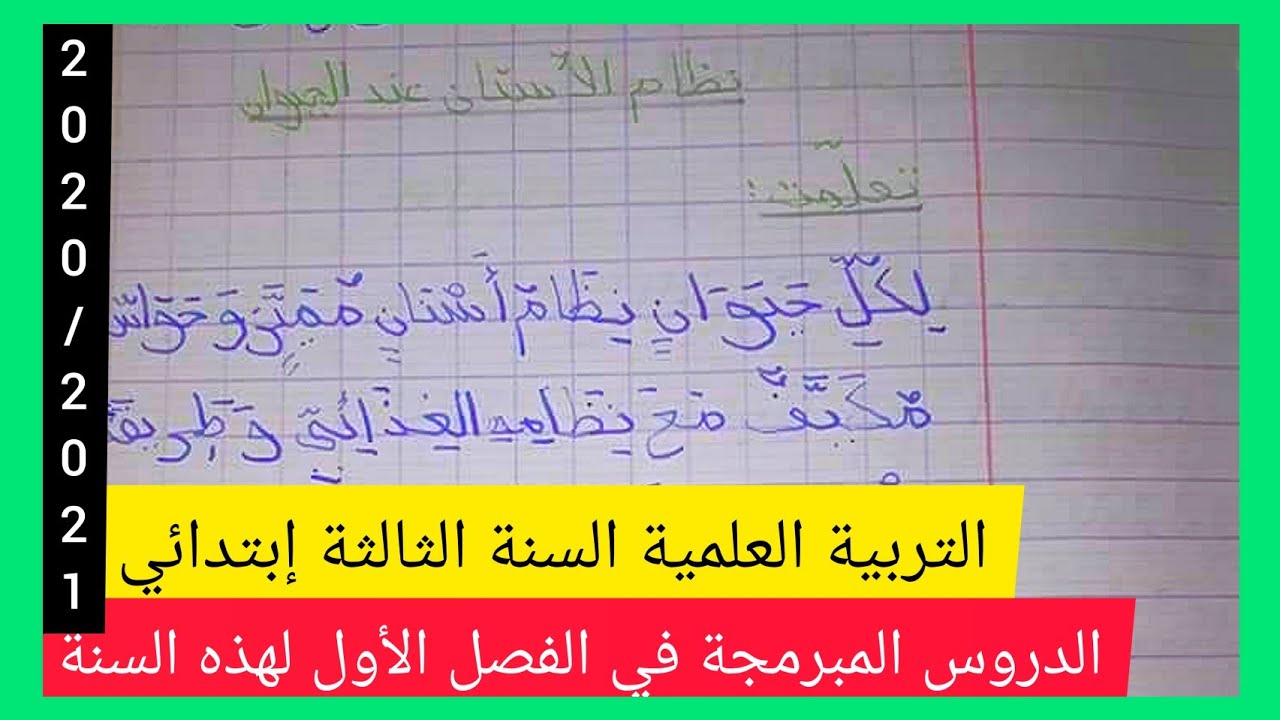 نظام الأسنان عند الحيوان
تعلّمت:
لِكلِّ حَيَوَانٍ نِظَامُ أَسْنَانٍ مُمَيَّزٍ وَحَوَاسّ
مُكَيَّفٌ مَعَ نِظَامِهِ الغِذَائِيِّ وَطَرِيقَة
2020/2021
التربية العلمية السنة الثالثة إبتدائي
الدروس المبرمجة في الفصل الأول لهذه السنة